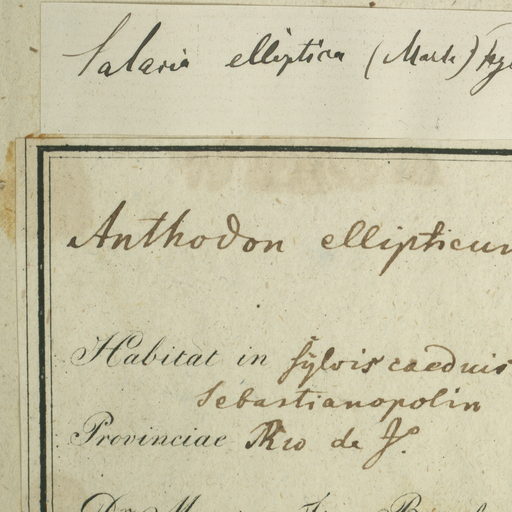 Salacia elliptica (Mart.)
Anthodon ellipticum
Habitat in sylvis caeduis
Sebastianopolin
Provinciae Rio de J.º